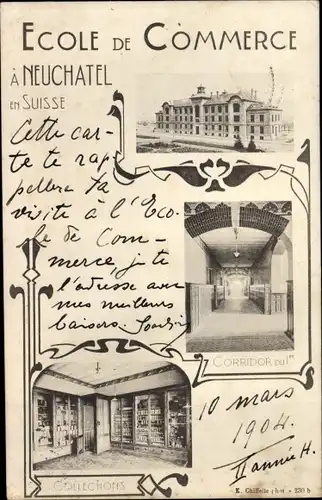 ECOLE DE COMMERCE
À NEUCHATEL
EN SUISSE
Cette car-
te te rap
pellera ta
visite à l'Eco-
le de Com-
merce, je te
l'adresse avec
mes meilleurs
baisers.
CORRIDOR DU 1er
10 mars
1904.
II année H.
COLLECTIONS